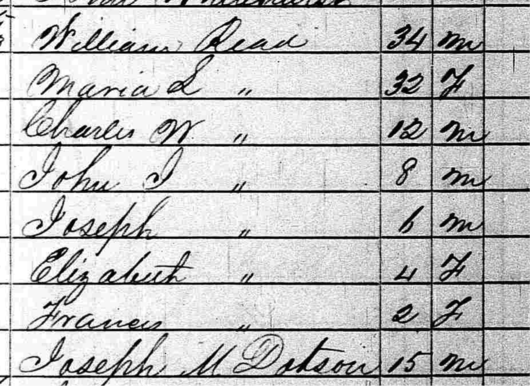 William Read 34 m
Maria L " 32 F
Charles W " 12 m
John J " 8 m
Joseph " 6 m
Elizabeth " 4 F
Francis " 2 F
Joseph M Dotson 15 m